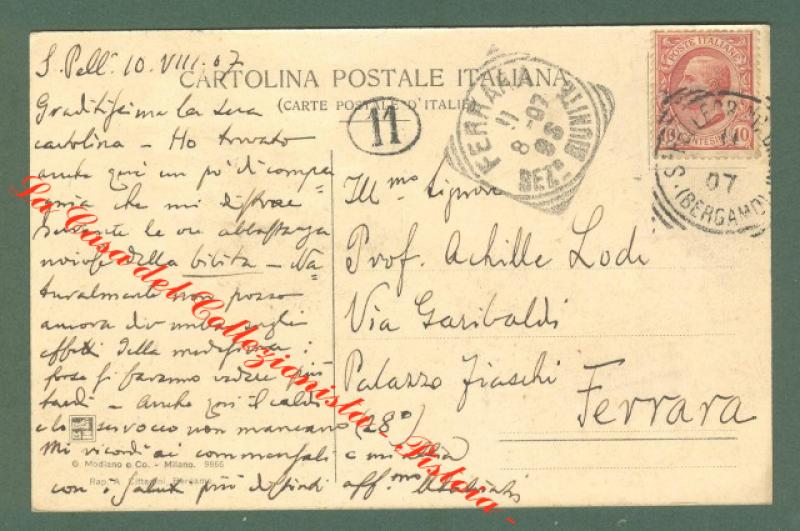 S. Pell. 10. VIII. 07
CARTOLINA POSTALE ITALIANA
(CARTE POSTALE D'ITALIE)
Graditissima la sua
cartolina - Ho trovato
anche qui un po' di compa-
gnia che mi distrae
durante le ore abbastanza
noiose della bibita - Na-
turalmente non posso
ancora dir nulla sugli
effetti della medesima:
forse si faranno vedere più
tardi - Anche qui il caldo
e lo scirocco non mancano (28°)
Mi ricordi ai commensali e
con saluti più distinti aff.mo
11
FERRARA
11
8-07
BEZ°
POSTE ITALIANE
CENTESIMI 10
07
(BERGAMO)
Ill.mo Signore
Prof. Achille Lodi
Via Garibaldi
Palazzo Fiaschi
Ferrara
© Modiano e Co. - Milano. 9866
Rap. A. Cittadini, Bergamo
La Casa del Collezionista - Pistoia -